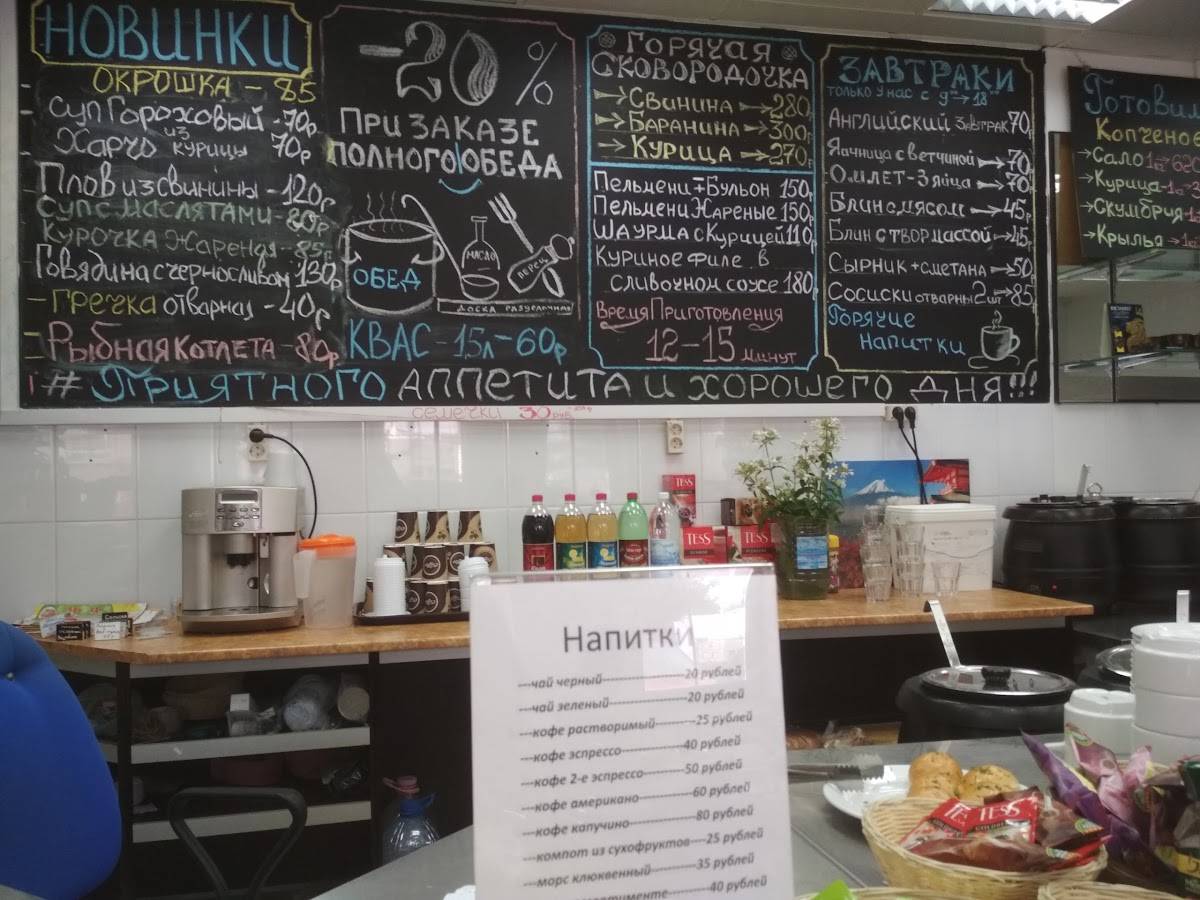 НОВИНКИ
ОКРОШКА - 85
СУП ГОРОХОВЫЙ - 70р
ХАРЧО ИЗ КУРИЦЫ 70р
ПЛОВ ИЗ СВИНИНЫ - 120р
СУП С МАСЛЯТАМИ - 80р
КУРОЧКА ЖАРЕНАЯ - 85р
ГОВЯДИНА С ЧЕРНОСЛИВОМ 130р
ГРЕЧКА ОТВАРНАЯ - 40р
РЫБНАЯ КОТЛЕТА - 80р
-20%
ПРИ ЗАКАЗЕ
ПОЛНОГО ОБЕДА
ОБЕД
МАСЛО
ПЕРЕЦ
ДОСКА РАЗДЕЛОЧНАЯ
КВАС - 1.5л - 60р
ГОРЯЧАЯ
СКОВОРОДОЧКА
СВИНИНА 280
БАРАНИНА 300
КУРИЦА 270
ПЕЛЬМЕНИ + БУЛЬОН 150р
ПЕЛЬМЕНИ ЖАРЕНЫЕ 150р
ШАУРМА С КУРИЦЕЙ 110р
КУРИНОЕ ФИЛЕ В
СЛИВОЧНОМ СОУСЕ 180р
ВРЕМЯ ПРИГОТОВЛЕНИЯ
12-15 МИНУТ
ЗАВТРАКИ
ТОЛЬКО У НАС С 9 18
АНГЛИЙСКИЙ ЗАВТРАК 70р
ЯИЧНИЦА С ВЕТЧИНОЙ 70
ОМЛЕТ - 3 ЯЙЦА 70
БЛИН С МЯСОМ 45р
БЛИН С ТВОР МАССОЙ 45
СЫРНИК + СМЕТАНА 50
СОСИСКИ ОТВАРНЫ 2 шт 85р
ГОРЯЧИЕ
НАПИТКИ
# ПРИЯТНОГО АППЕТИТА И ХОРОШЕГО ДНЯ!!!
Копченое
Сало
Курица
Скумбрия
Крылья
СЕМЕЧКИ 30 РУБ
TESS
TESS
TESS
Напитки
---чай черный---------------------20 рублей
---чай зеленый--------------------20 рублей
---кофе растворимый----------25 рублей
---кофе эспрессо---------------40 рублей
---кофе 2-е эспрессо----------50 рублей
---кофе американо-------------60 рублей
---кофе капучино----------------80 рублей
---компот из сухофруктов----25 рублей
---морс клюквенный----------35 рублей
40 рублей
TESS